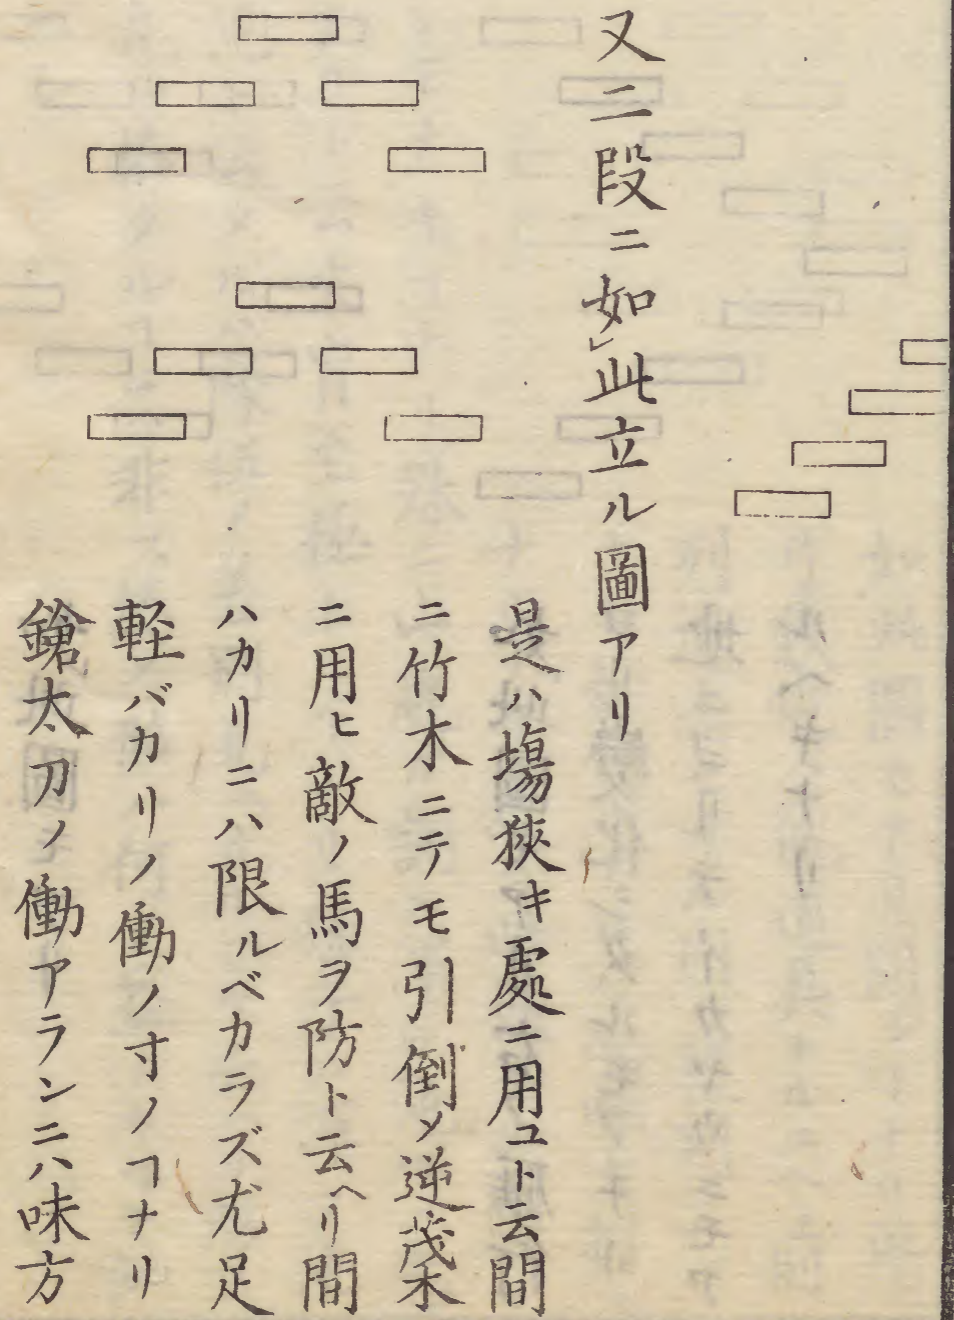 又二段ニ如㆑此立ル圖アリ
是ハ塲狹キ處ニ用ユト云間
ニ竹木ニテモ引倒〆逆茂木
ニ用ヒ敵ノ馬ヲ防ト云ヘリ間
ハカリニハ限ルベカラズ尤足
軽バカリノ働ノ寸ノヿナリ
鎗太刀ノ働アランニハ味方